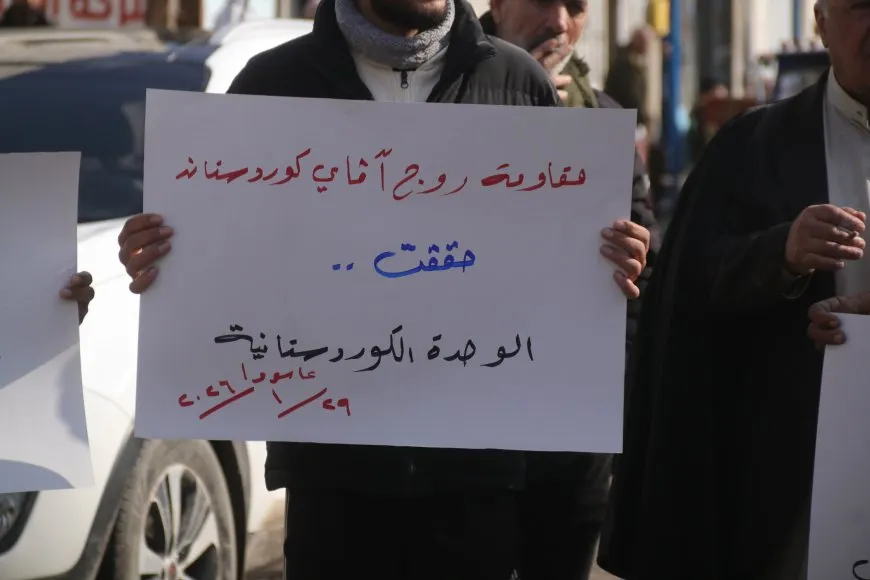 مقاومة روج آڤاي كوردستان
حققت ..
الوحدة الكوردستانية
عامودا
٢٩/١/٢٠٢٦